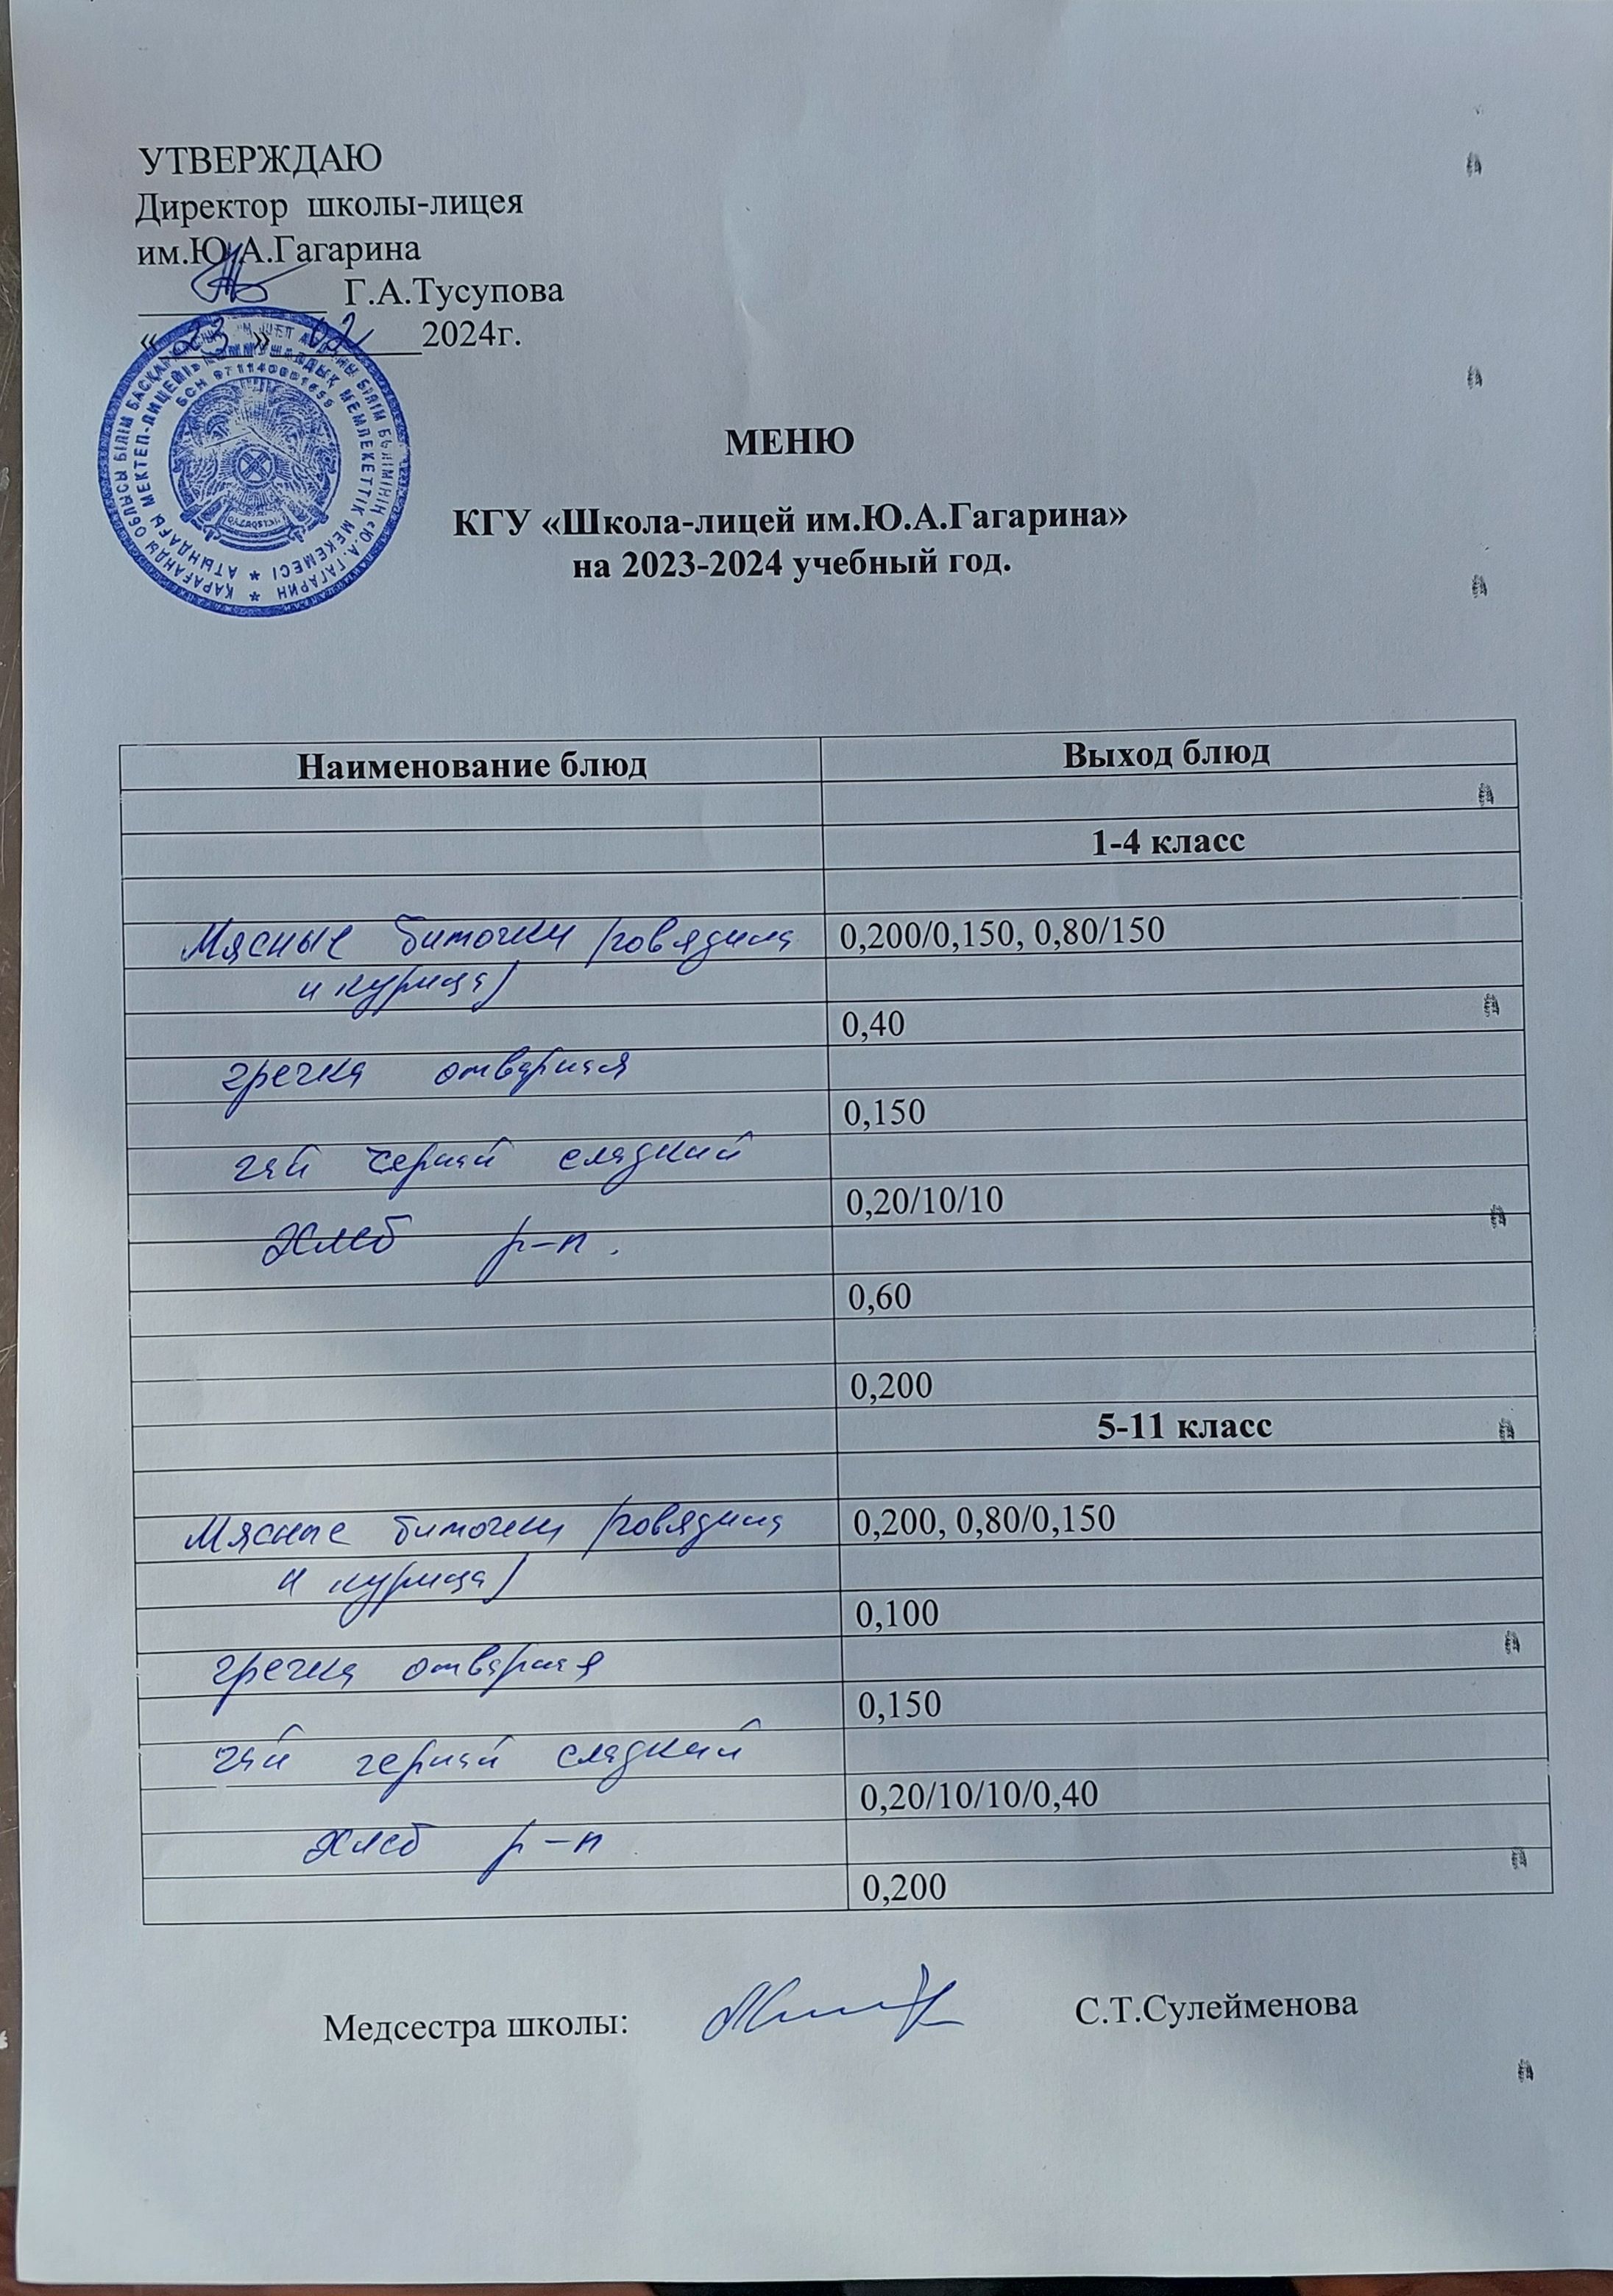 УТВЕРЖДАЮ
Директор школы-лицея
им.Ю.А.Гагарина
Г.А.Тусупова
«23» 02 2024г.
БСН
МЕНЮ
КГУ «Школа-лицей им.Ю.А.Гагарина»
на 2023-2024 учебный год.
Наименование блюд Выход блюд
1-4 класс
Мясные биточки (говядина 0,200/0,150, 0,80/150
и курица)
0,40
гречка отварная
0,150
чай черный сладкий
0,20/10/10
Хлеб р-п.
0,60
0,200
5-11 класс
Мясные биточки (говядина 0,200, 0,80/0,150
и курица)
0,100
гречка отварная
0,150
чай черный сладкий
0,20/10/10/0,40
Хлеб р-п
0,200
Медсестра школы: С.Т.Сулейменова